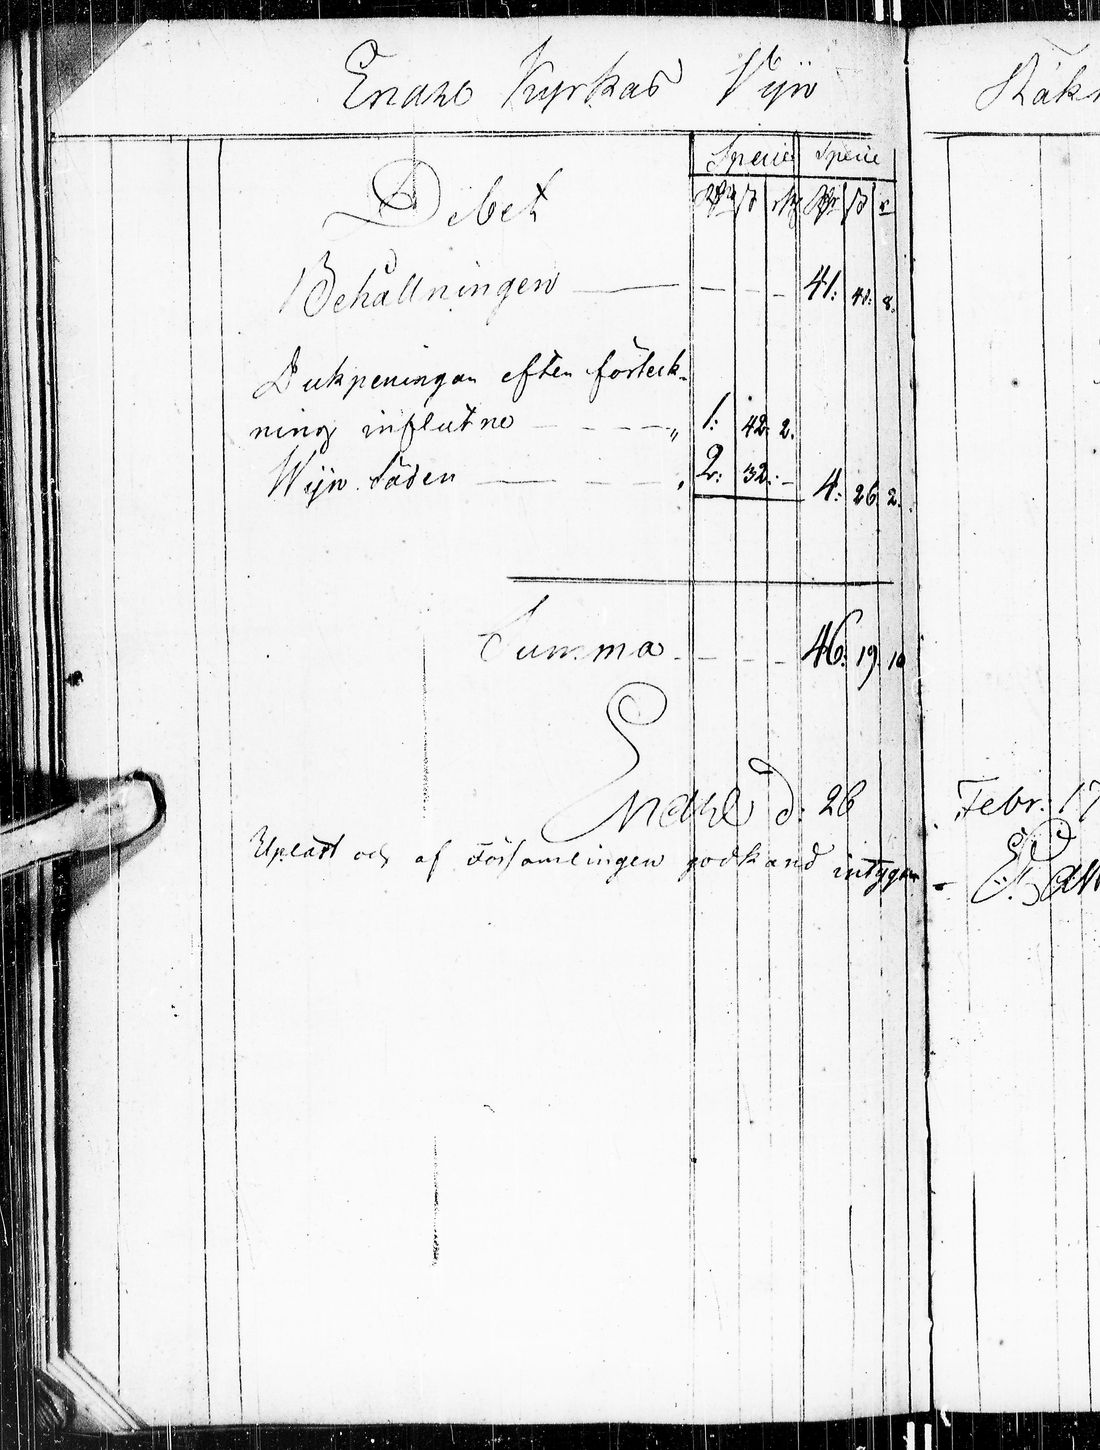 Enåhe Kyrkas Vijn Räk
Debet
Specie Specie
Rdr ß rst Rdr ß r
Behållningen — — — — 41: 41: 8.
Dukpeningar efter förteck-
ning influtne — — — „ 1: 42. 2.
Wijn Säden — — — „ 2: 32. — 4: 26. 2.
Summa — — — — 46: 19. 10
d: 26 Febr. 17
Upläst och af Församlingen godkänd intygar -